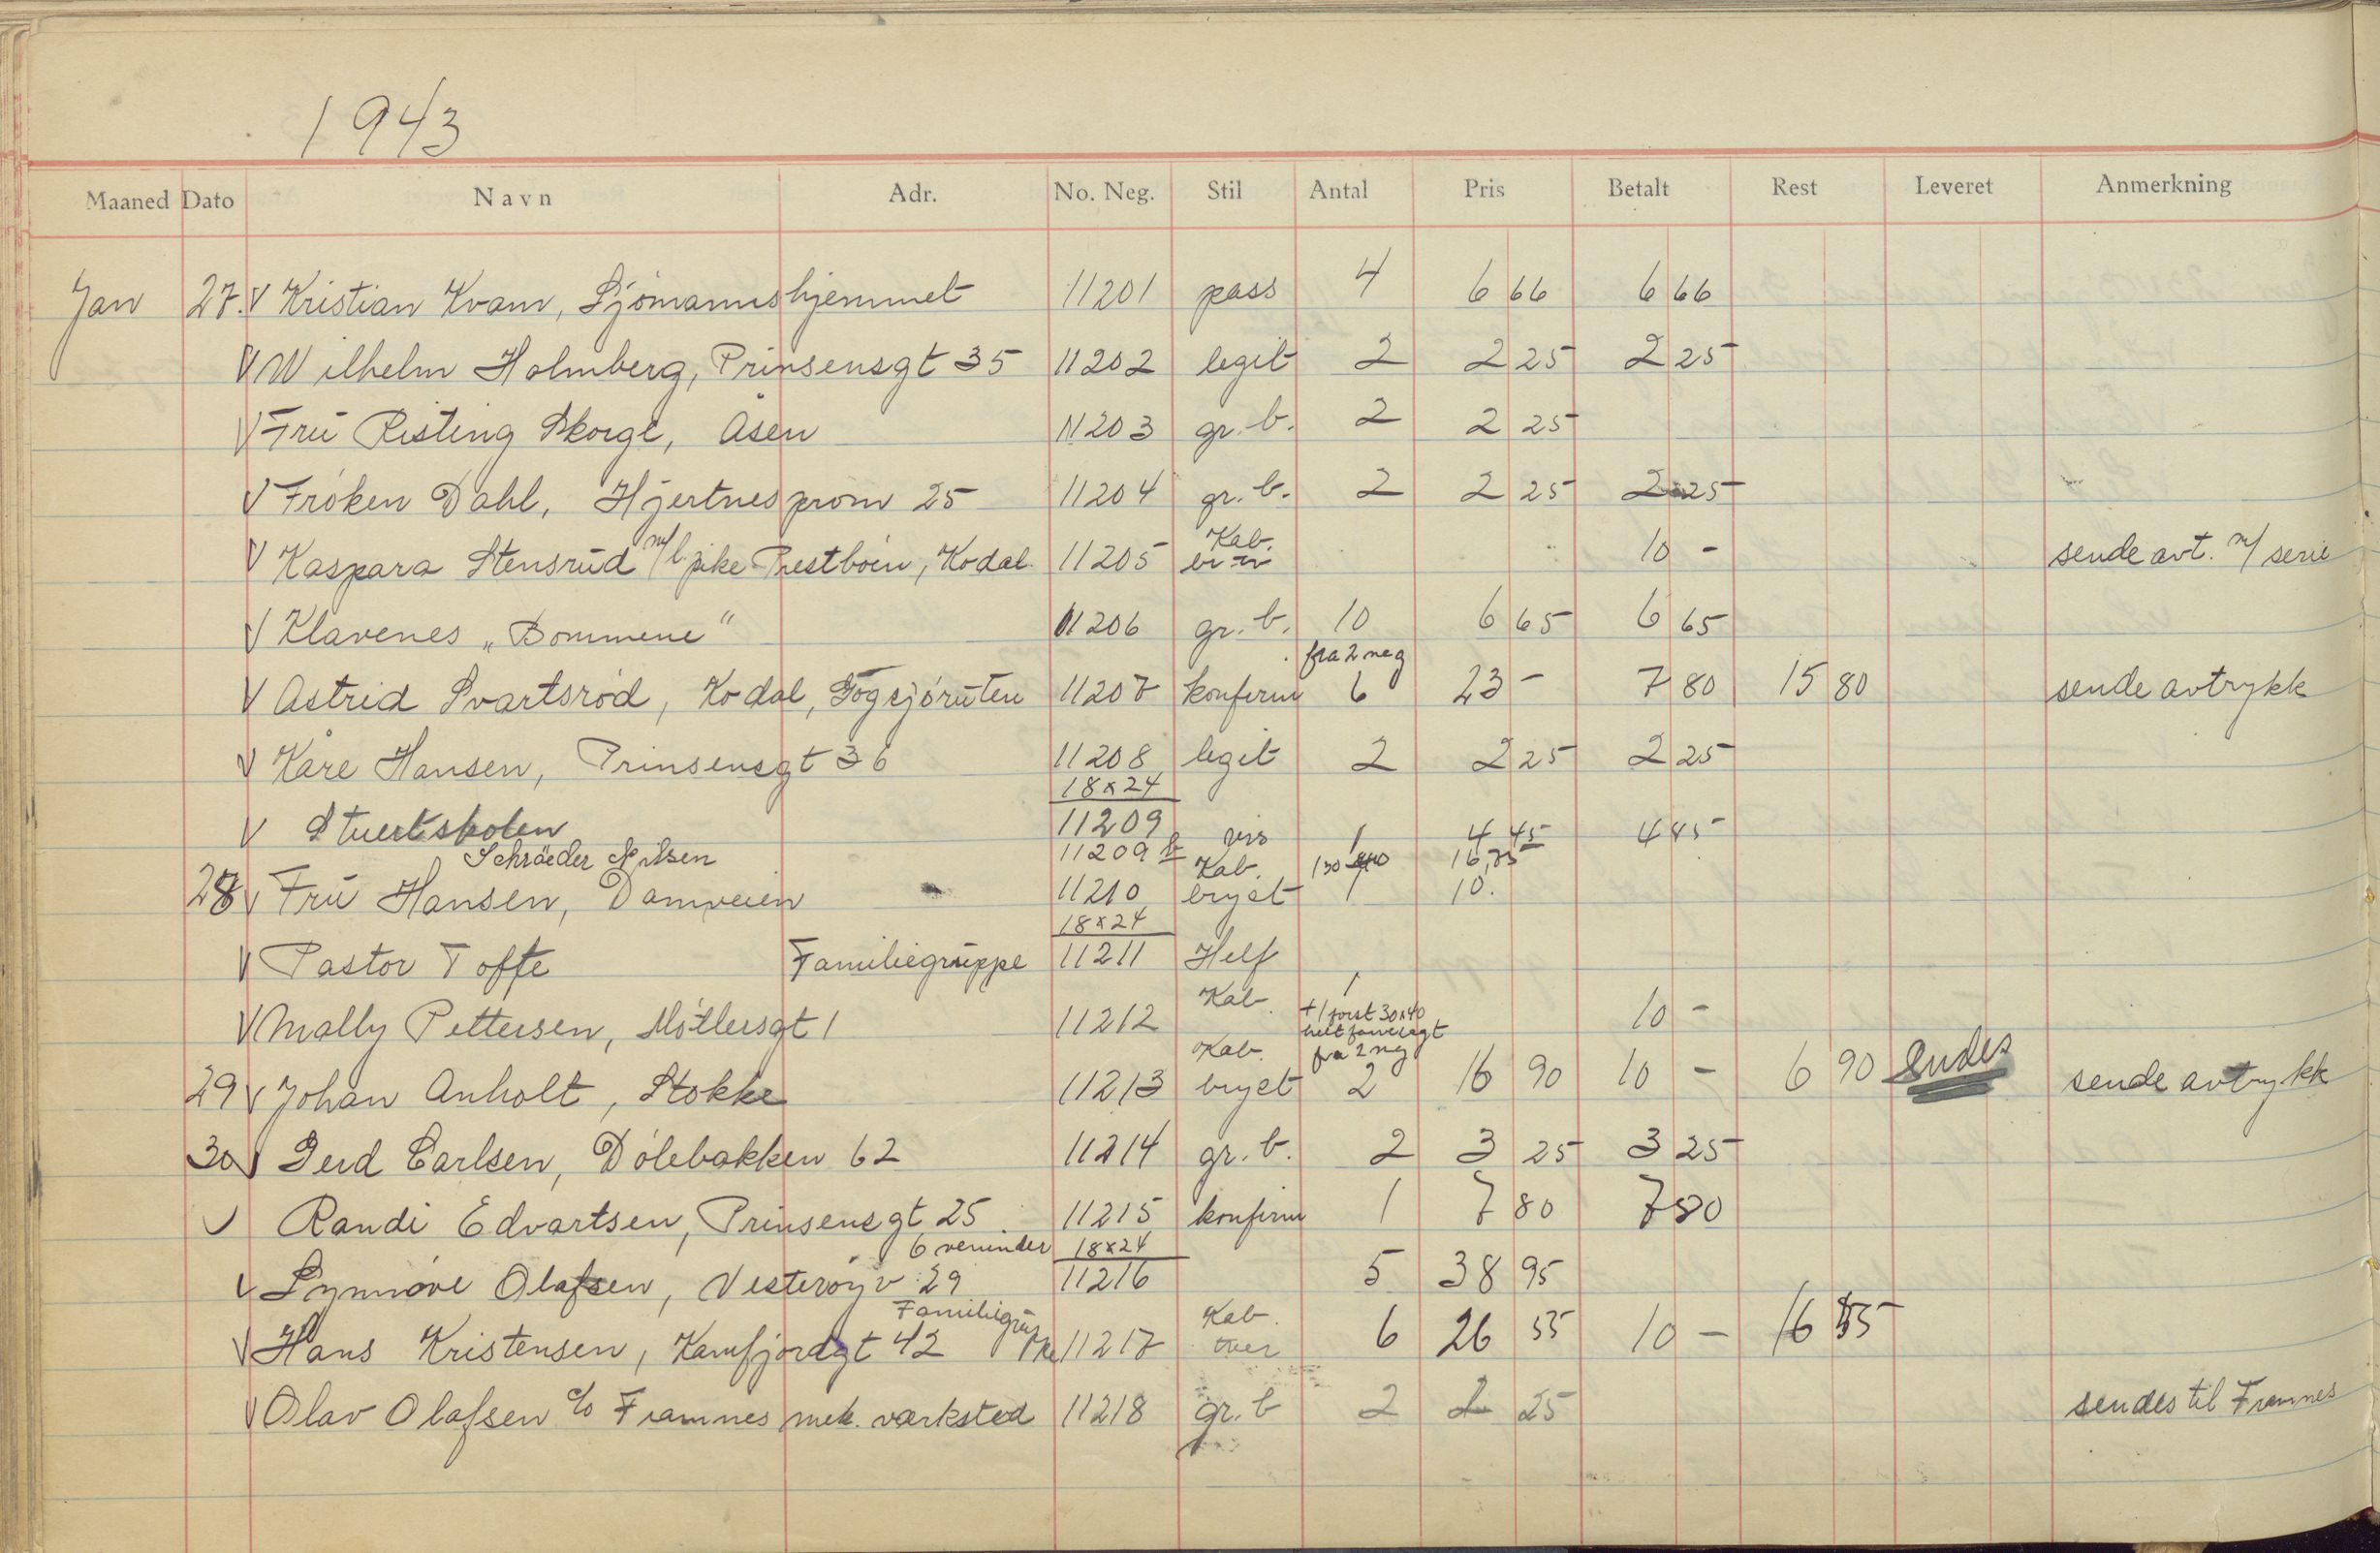 1943
Maaned Dato Navn Adr. No. Neg. Stil Antal Pris Betalt Rest Leveret Anmerkning
Jan 27. V Kristian Kvam, Sjömannshjemmet 11201 pass 4 6 66 6 66
V Wilhelm Holmberg, Prinsensgt 35 11202 legit 2 2 25 2 25
V Frü Risting Skorge, Åsen 11203 gr. b. 2 2 25
V Fröken Dahl, Hjertnesprom 25 11204 gr. b. 2 2 25 2 25
Kab.
V Kaspara Stensrüd m/l pike Prestböen, Kodal 11205 10 - sende avt. m/ serie
V Klavenes „Bommene" 11206 gr. b. 10 6 65 6 65
fra 2 neg
V Astrid Svartsröd, Kodal, Gogsjörüten 11207 konfirm 6 23 - 7 80 15 80 sende avtrykk
V Kåre Hansen, Prinsensgt 36 11208 legit 2 2 25 2 25
18x24
V Stuertskolen 11209 vis 1 4 45 4 45
Schröder Nilsen 11209 b Kab. 16,75
28 V Frü Hansen, Damveien 11210 bryst 1 10.
18x24
V Pastor Tofte Familiegrüppe 11211 Helf
V Mally Pettersen, Möllersgt 1 11212 Kab 1 10 -
+ 1 forst 30x40
Kab. fra 2 neg
29 V Johan Anholt, Stokke 11213 bryst 2 16 90 10 - 6 90 Sendes sende avtrykk
30 V Gerd Carlsen, Dölebakken 62 11214 gr. b. 2 3 25 3 25
V Randi Edvartsen, Prinsensgt 25 11215 konfirm 1 7 80 7 80
6 veninder 18x24
V Synnöve Olafsen, Vesteröyv 29 11216 5 38 95
Familiegrüppe Kab.
V Hans Kristensen, Kamfjordgt 42 11217 tver 6 26 55 10 - 16 55
V Olav Olafsen c/o Framnes mek. værksted 11218 gr. b 2 2 25 sendes til Framnes